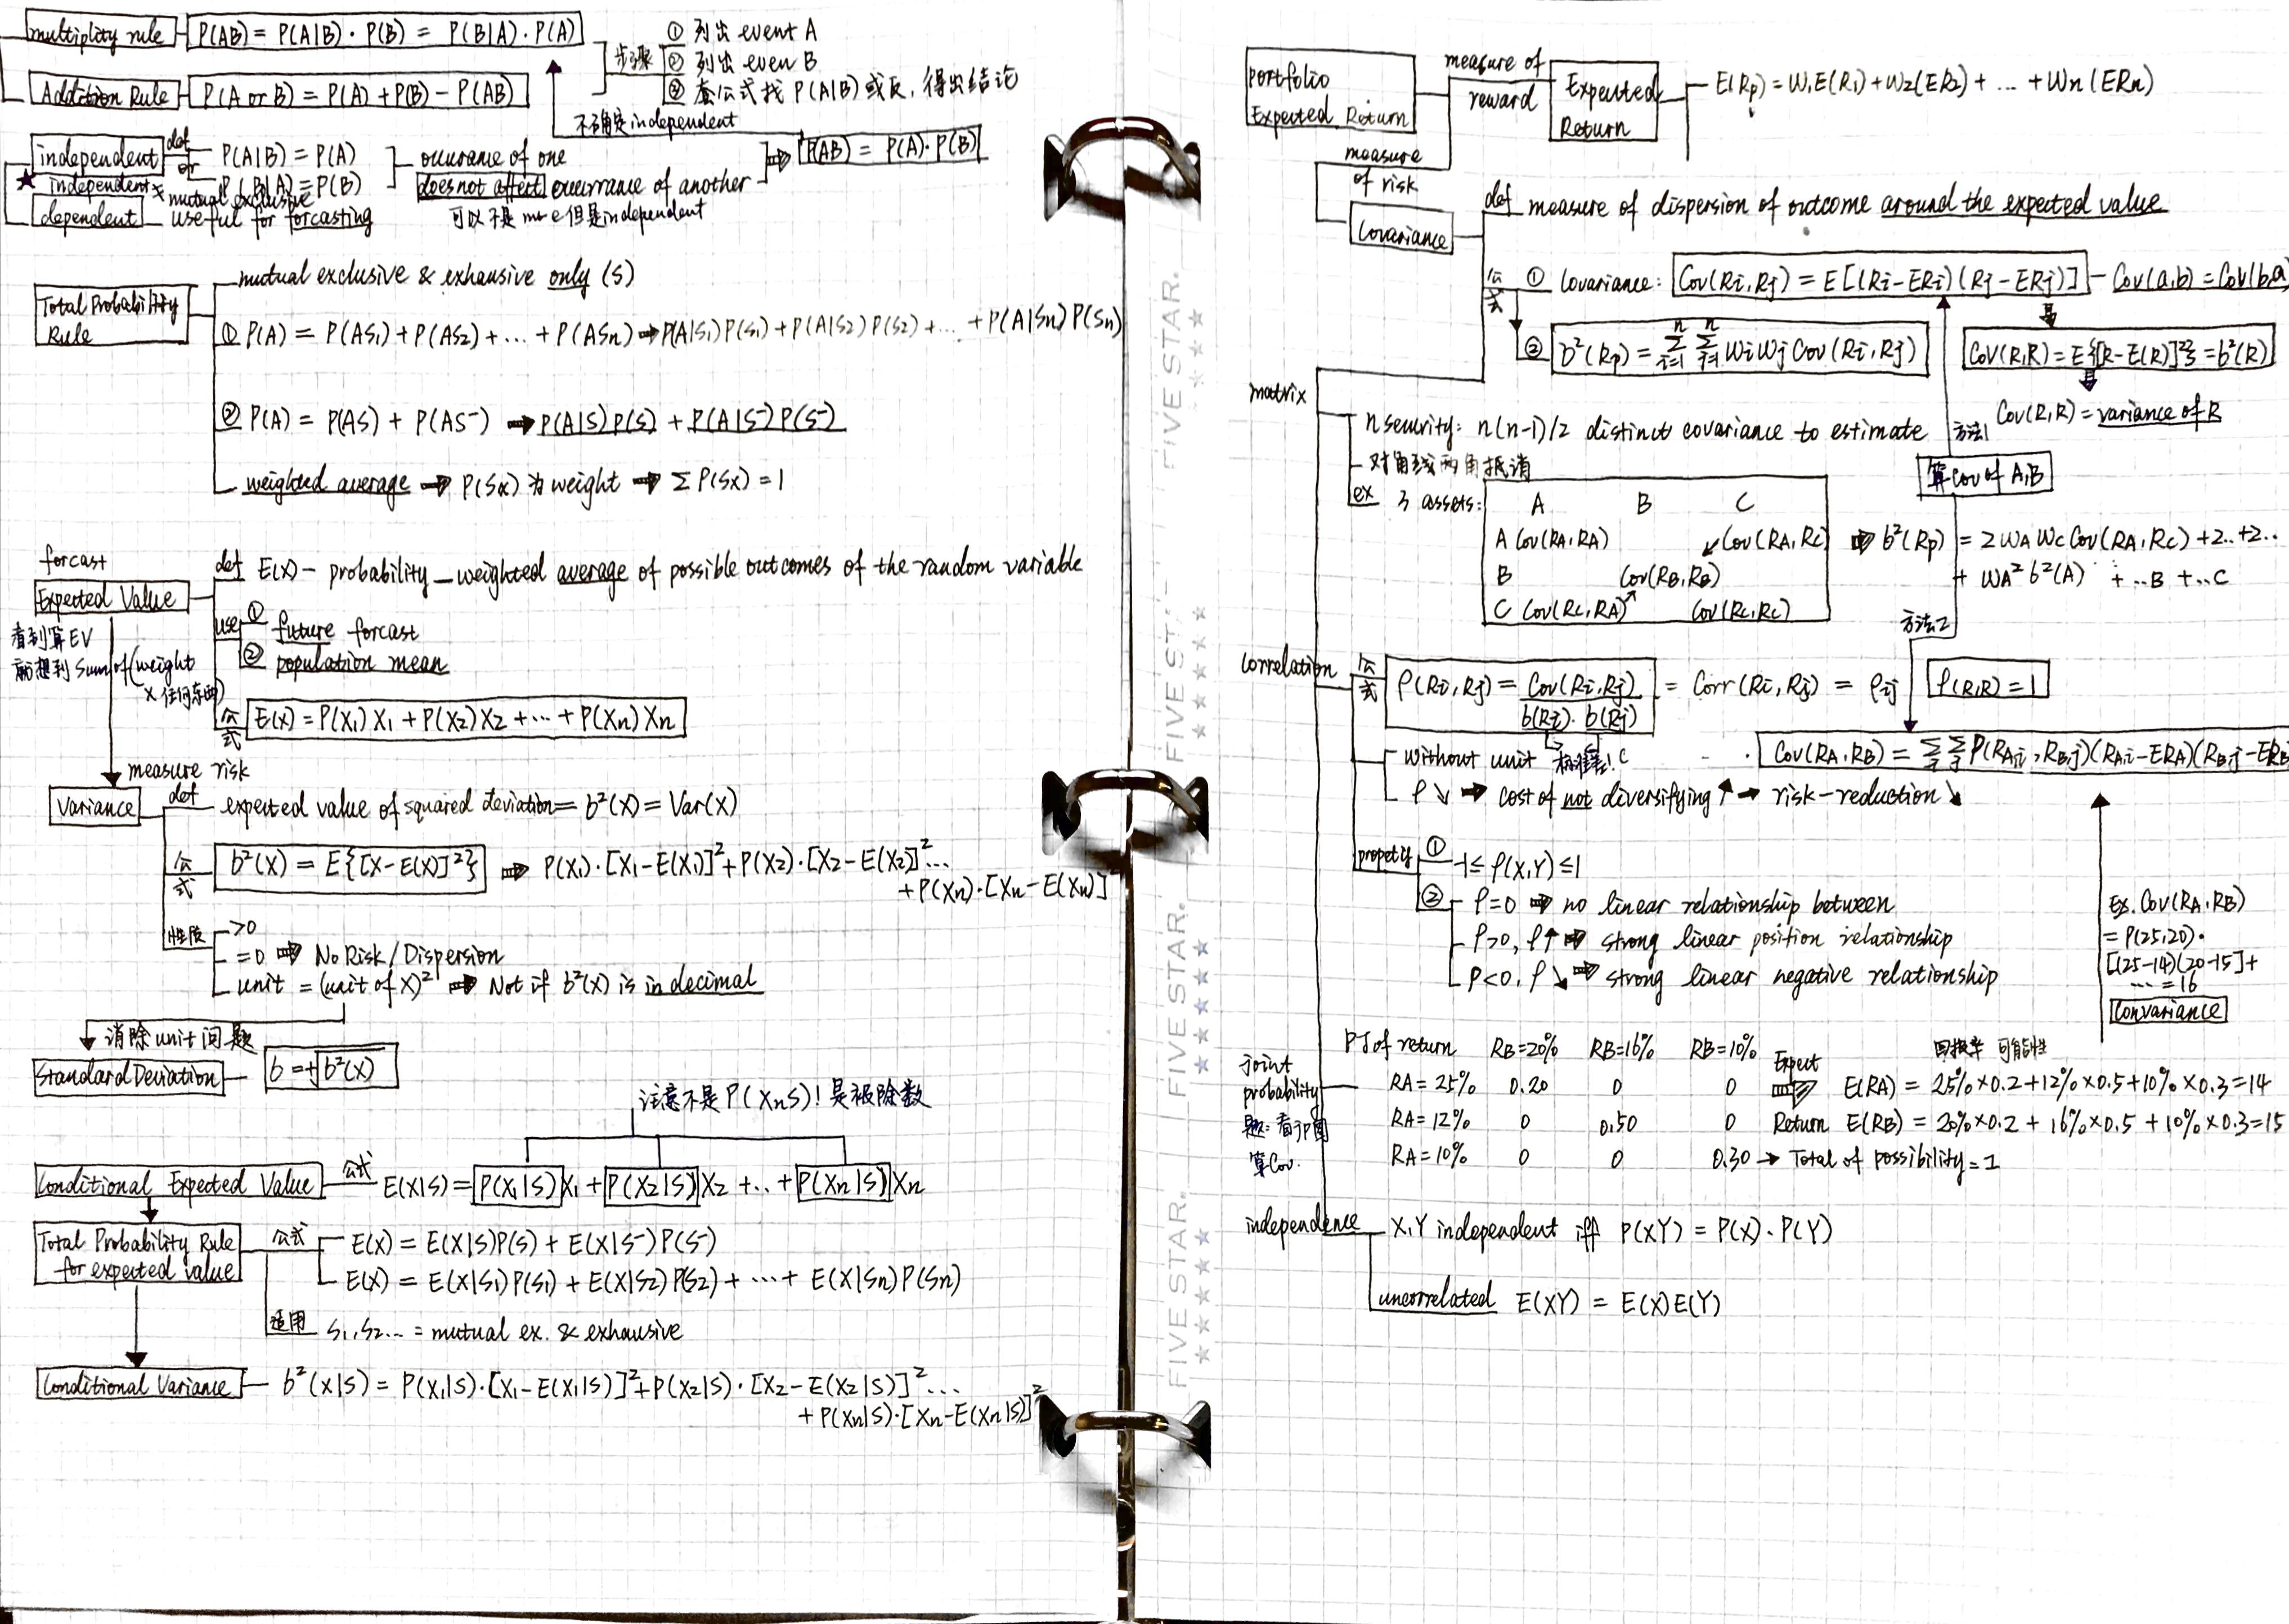 multiplity rule P(AB) = P(A|B) · P(B) = P(B|A) · P(A)
Addition Rule P(A or B) = P(A) + P(B) - P(AB)
步骤 ① 列出 event A
② 列出 even B
③ 套公式找 P(A|B) 或反, 得出结论
不确定 independent
independent def P(A|B) = P(A)
or P(B|A) = P(B)
independent ≠ mutual exclusive
ouurance of one
does not affect ouurrance of another
⇒ P(AB) = P(A) · P(B)
可以不是 m e 但是 independent
dependent useful for forcasting
Total Probability
Rule
mutual exclusive & exhausive only (S)
① P(A) = P(AS1) + P(AS2) + ... + P(ASn) ⇒ P(A|S1)P(S1) + P(A|S2)P(S2) + ... + P(A|Sn)P(Sn)
② P(A) = P(AS) + P(AS⁻) ⇒ P(A|S)P(S) + P(A|S⁻)P(S⁻)
weighted average ⇒ P(Sx) 为 weight ⇒ Σ P(Sx) = 1
forcast
Expected Value
看到算EV
就想到 sum of (weight
x 任何东西)
def E(X) - probability - weighted average of possible outcomes of the random variable
use ① future forcast
② population mean
公式 E(X) = P(X1)X1 + P(X2)X2 + ... + P(Xn)Xn
measure risk
Variance
def expected value of squared deviation = b²(X) = Var(X)
公式 b²(X) = E{[X-E(X)]²} ⇒ P(X1)·[X1-E(X1)]² + P(X2)·[X2-E(X2)]²...
+ P(Xn)·[Xn-E(Xn)]²
性质 >0
=0 ⇒ No Risk/Dispersion
unit = (unit of X)² ⇒ Not if b²(X) is in decimal
消除 unit 问题
Standard Deviation b = +√b²(X)
注意不是 P(XnS)! 是被除数
Conditional Expected Value 公式 E(X|S) = P(X1|S)X1 + P(X2|S)X2 + ... + P(Xn|S)Xn
Total Probability Rule
for expected value
公式 E(X) = E(X|S)P(S) + E(X|S⁻)P(S⁻)
E(X) = E(X|S1)P(S1) + E(X|S2)P(S2) + ... + E(X|Sn)P(Sn)
适用 S1, S2... = mutual ex. & exhausive
Conditional Variance b²(X|S) = P(X1|S)·[X1-E(X1|S)]² + P(X2|S)·[X2-E(X2|S)]²...
+ P(Xn|S)·[Xn-E(Xn|S)]²
FIVE STAR.
FIVE STAR.
FIVE STAR.
FIVE STAR.
portfolio
Expected Return
measure of
reward
Expected
Return
E(Rp) = W1E(R1) + W2(ER2) + ... + Wn(ERn)
measure
of risk
Covariance
def measure of dispersion of outcome around the expected value
公式 ① Covariance: Cov(Ri,Rj) = E[(Ri-ERi)(Rj-ERj)] - Cov(a,b) = Cov(b,a)
② b²(Rp) = Σ Σ WiWj Cov(Ri,Rj)
n n
i=1 j=1
Cov(R,R) = E{[R-E(R)]²} = b²(R)
Cov(R,R) = variance of R
matrix
n security: n(n-1)/2 distinct covariance to estimate
对角线两角抵消
方法1
算Cov of A,B
ex 3 assets:
A B C
A Cov(RA,RA) Cov(RA,RC)
B Cov(RB,RB)
C Cov(RC,RA) Cov(RC,RC)
⇒ b²(Rp) = 2WAWC Cov(RA,RC) + 2.. + 2..
+ WA²b²(A) + ...B + ...C
方法2
correlation
公式 ρ(Ri,Rj) = Cov(Ri,Rj) / b(Ri)·b(Rj) = Corr(Ri,Rj) = ρij
ρ(R,R) = 1
Cov(RA,RB) = Σ Σ P(RA,i, RB,j)(RA,i-ERA)(RB,j-ERB)
i j
without unit 标准差!
ρ↘ ⇒ cost of not diversifying ↑ → risk-reduction ↘
propety ① -1 ≤ ρ(X,Y) ≤ 1
② ρ=0 ⇒ no linear relationship between
ρ>0, ρ↑ ⇒ strong linear position relationship
ρ<0, ρ↘ ⇒ strong linear negative relationship
Ex. Cov(RA,RB)
= P(25,20)·
[(25-14)(20-15)] +
... = 16
Convariance
joint
probability
题: 看JP图
算Cov.
PJ of return RB=20% RB=16% RB=10%
RA=25% 0.20 0 0
RA=12% 0 0.50 0
RA=10% 0 0 0.30 → Total of possibility = 1
Expect
Return
回报率 可能性
E(RA) = 25%×0.2 + 12%×0.5 + 10%×0.3 = 14
E(RB) = 20%×0.2 + 16%×0.5 + 10%×0.3 = 15
independence X,Y independent iff P(XY) = P(X)·P(Y)
uncorrelated E(XY) = E(X)E(Y)